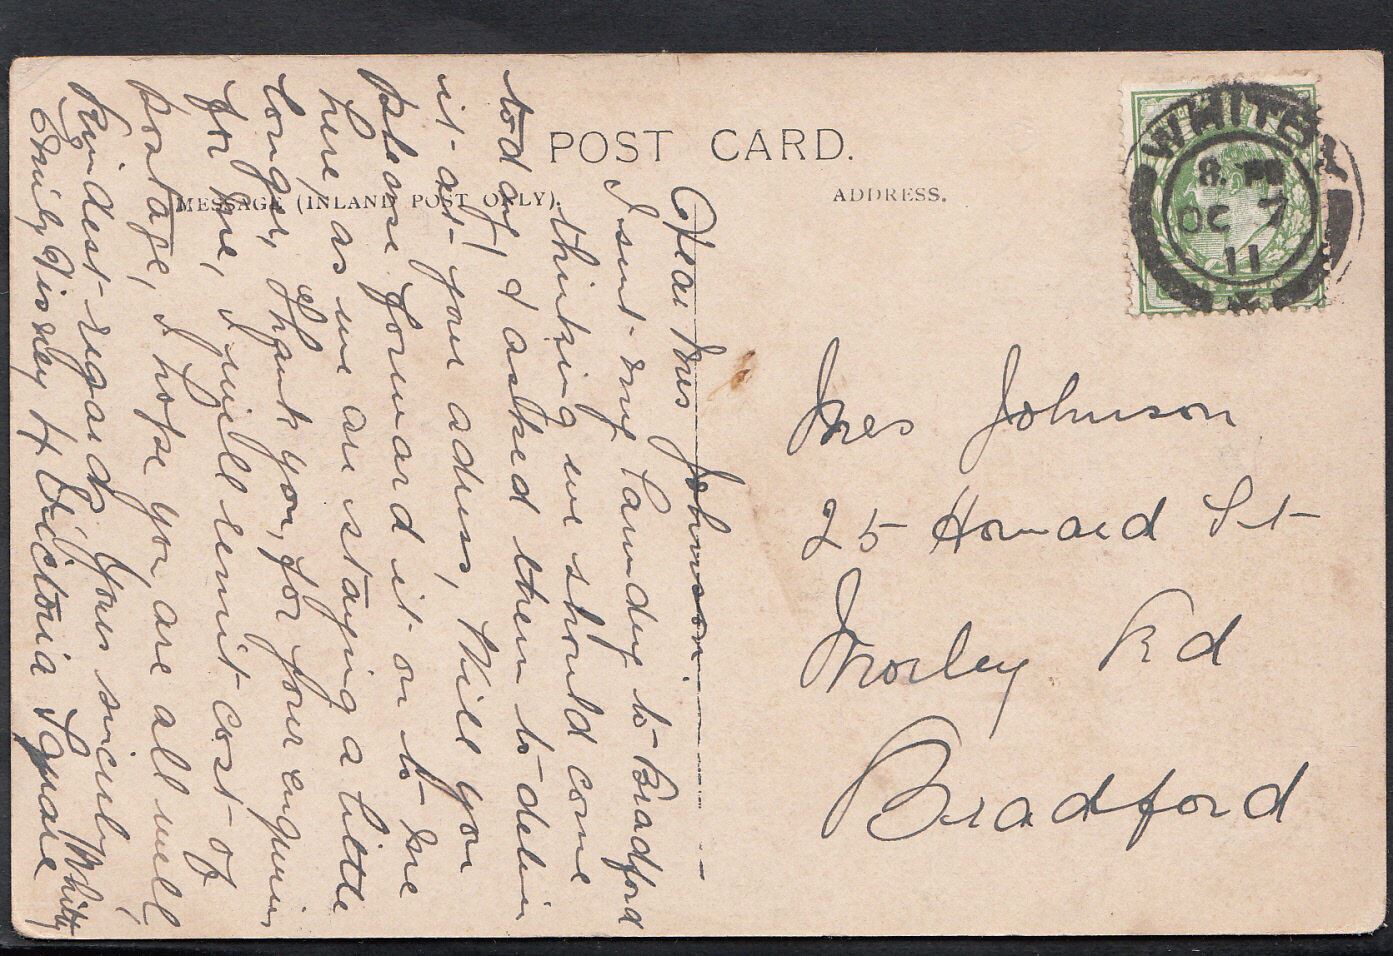 POST CARD.
MESSAGE (INLAND POST ONLY).
ADDRESS.
WHITBY
8. PM
OC 7
11
Dear Mrs Johnson
I sent my laundry to Bradford
thinking we should come
today, I asked them to deliver
it at your address, Will you
please forward it on to me
here, as we are staying a little
longer, Thank you, for your enquiries
for me, I will remit cost of
postage, I hope you are all well,
Kindest regards Yours sincerely
Emily 4 Victoria Square Whitby
Mrs Johnson
25 Howard St
Morley Rd
Bradford